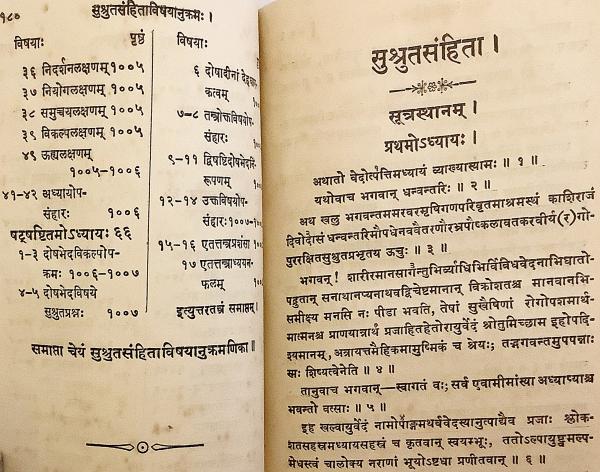 १८०
सुश्रुतसंहिताविषयानुक्रमः।
विषयाः पृष्ठं
३६ निदर्शनलक्षणम् १००५
३७ नियोगलक्षणम् १००५
३८ समुच्चयलक्षणम् १००५
३९ विकल्पलक्षणम् १००५
४९ ऊह्यलक्षणम्
१००५-१००६
४१-४२ अध्यायोप-
संहारः १००६
षट्षष्टितमोऽध्यायः ६६
१-३ दोषभेदविकल्पोप-
क्रमः १००६-१००७
४-५ दोषभेदविषये
सुश्रुतप्रश्नः १००७
विषयाः
६ दोषादीनां
कत्वम्
७-८ तन्त्रोक्तविषयोप-
संहारः
९-११ द्विषष्टिदोषभेदनि-
रूपणम्
१२-१४ उक्तविषयोप-
संहारः १००७-१००
१५-१६ एतत्तन्त्रप्रशंसा
१७ एतत्तन्त्राध्ययन-
फलम्
इत्युत्तरतन्त्रं समाप्तम्।
समाप्ता चेयं सुश्रुतसंहिताविषयानुक्रमणिका॥
सुश्रुतसंहिता।
सूत्रस्थानम्।
प्रथमोऽध्यायः।
अथातो वेदोत्पत्तिमध्यायं व्याख्यास्यामः ॥ १ ॥
यथोवाच भगवान् धन्वन्तरिः ॥ २ ॥
अथ खलु भगवन्तममरवरमृषिगणपरिवृतमाश्रमस्थं काशिराजं
दिवोदासं धन्वन्तरिमौपधेनववैतरणौरभ्रपौष्कलावतकरवीर्य(र)गो-
पुररक्षितसुश्रुतप्रभृतय ऊचुः ॥ ३ ॥
भगवन्! शारीरमानसागन्तुभिर्व्याधिभिर्विविधवेदनाभिघातो-
पद्रुतान् सनाथानप्यनाथवद्विचेष्टमानान् विक्रोशतश्च मानवानभि-
समीक्ष्य मनसि नः पीडा भवति, तेषां सुखैषिणां रोगोपशमार्थ-
मात्मनश्च प्राणयात्रार्थं प्रजाहितहेतोरायुर्वेदं श्रोतुमिच्छाम इहोपदि-
श्यमानम्, अत्रायत्तमैहिकमामुष्मिकं च श्रेयः; तद्भगवन्तमुपपन्नाः
स्मः शिष्यत्वेनेति ॥ ४ ॥
तानुवाच भगवान्—स्वागतं वः; सर्व एवामीमांस्या अध्याप्याश्च
भवन्तो वत्साः ॥ ५ ॥
इह खल्वायुर्वेदं नामोपाङ्गमथर्ववेदस्यानुत्पाद्यैव प्रजाः श्लोक-
शतसहस्रमध्यायसहस्रं च कृतवान् स्वयम्भूः, ततोऽल्पायुष्ट्वमल्प-
मेधस्त्वं चालोक्य नराणां भूयोऽष्टधा प्रणीतवान् ॥ ६ ॥